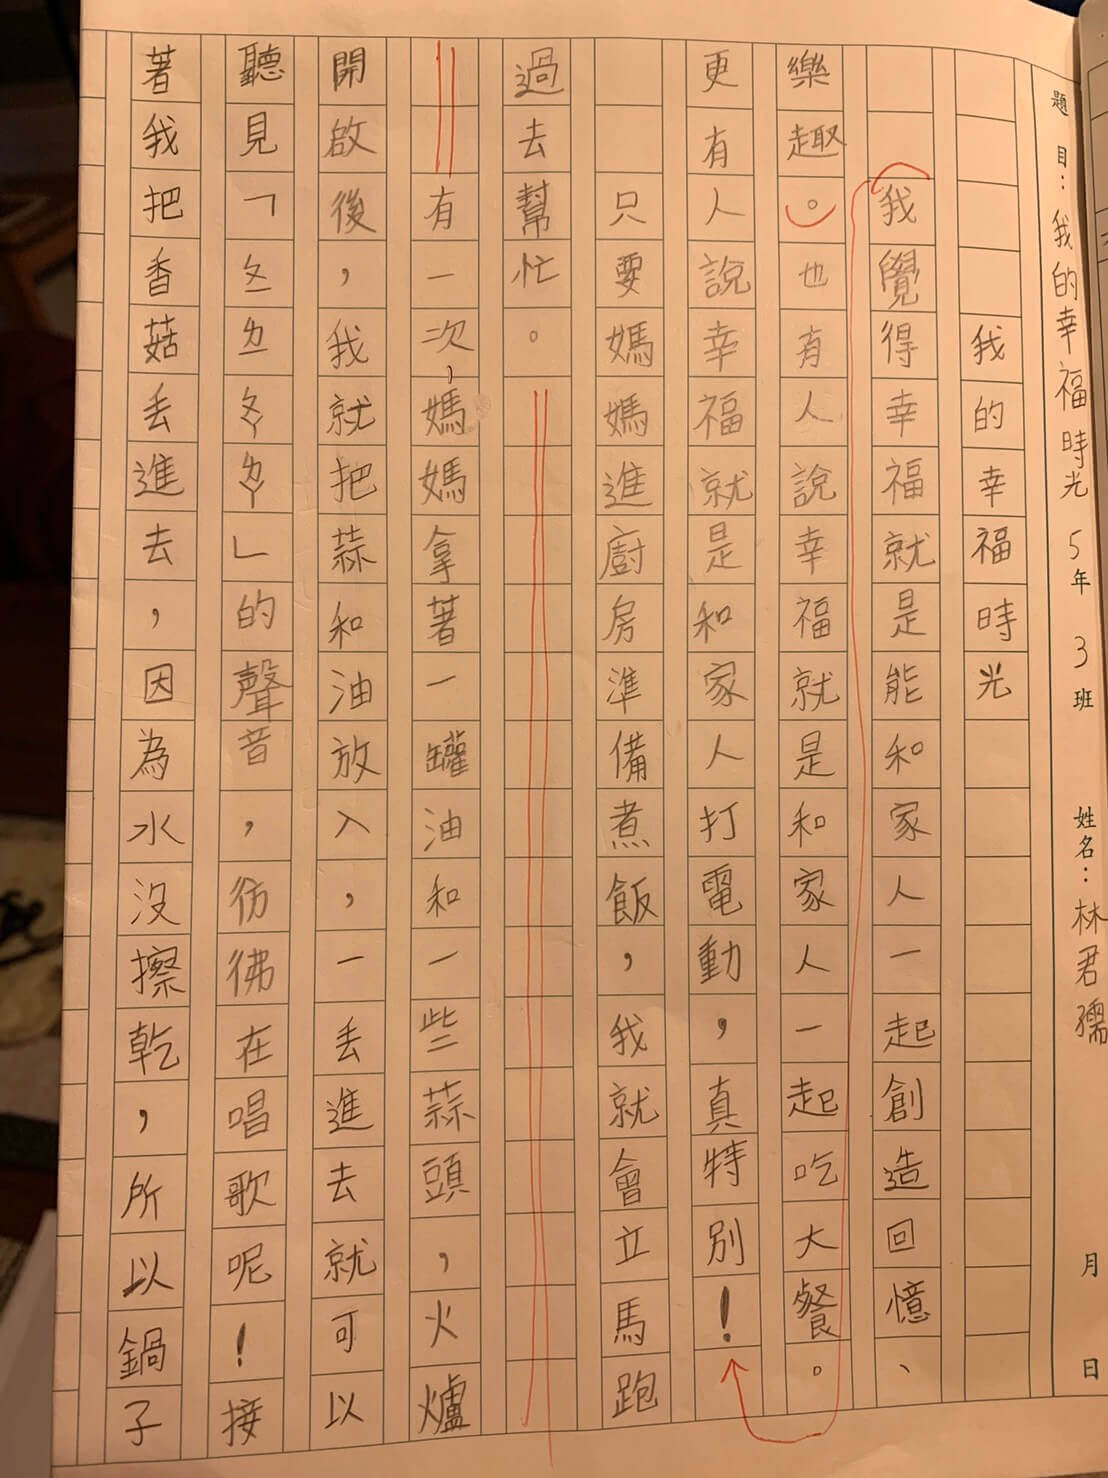 題目:我的幸福時光 5年3班 姓名:林君孺 月 日
我的幸福時光
我覺得幸福就是能和家人一起創造回憶、
樂趣。也有人說幸福就是和家人一起吃大餐。
更有人說幸福就是和家人打電動,真特別!
只要媽媽進廚房準備煮飯,我就會立馬跑
過去幫忙。
有一次,媽媽拿著一罐油和一些蒜頭,火爐
開啟後,我就把蒜和油放入,一丟進去就可以
聽見「ㄆㄧㄌㄧㄆㄚㄌㄚ」的聲音,彷彿在唱歌呢!接
著我把香菇丟進去,因為水沒擦乾,所以鍋子